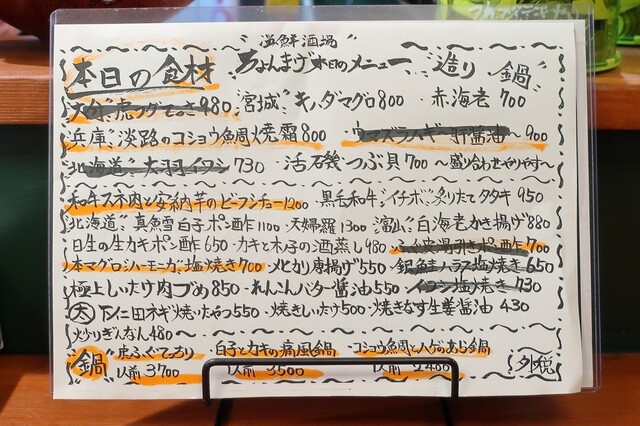 海鮮酒場
本日の食材 ちょんまげ 本日のメニュー 造り 鍋
大分 虎フグてっさ 980 宮城 キハダマグロ 800 赤海老 700
兵庫 淡路のコショウ鯛焼霜 800 ウマズラハギ 肝醤油 900
北海道 大羽イワシ 730 活 磯つぶ貝 700 〜盛り合わせやります〜
和牛スネ肉と安納芋のビーフシチュー 1200 黒毛和牛 イチボ 炙りたてタタキ 950
北海道 真鱈白子ポン酢 1100 天婦羅 1300 富山 白海老かき揚げ 880
日生の生カキポン酢 650 カキと木の子の酒蒸し 980 ふぐ皮湯引きポン酢 700
本マグロハーモニカ 塩焼き 700 メヒカリ唐揚げ 550 銀鮭ハラス塩焼き 650
極上しいたけ肉づめ 850 れんこんバター醤油 550 イワシ塩焼き 730
大 下仁田ネギ焼いたやつ 550 焼きしいたけ 500 焼きなす生姜醤油 430
炒りぎんなん 480〜
鍋 虎ふぐてっちり 白子とカキの痛風鍋 コショウ鯛とハゲのあら鍋
1人前 3700 1人前 3500 1人前 2480 外税